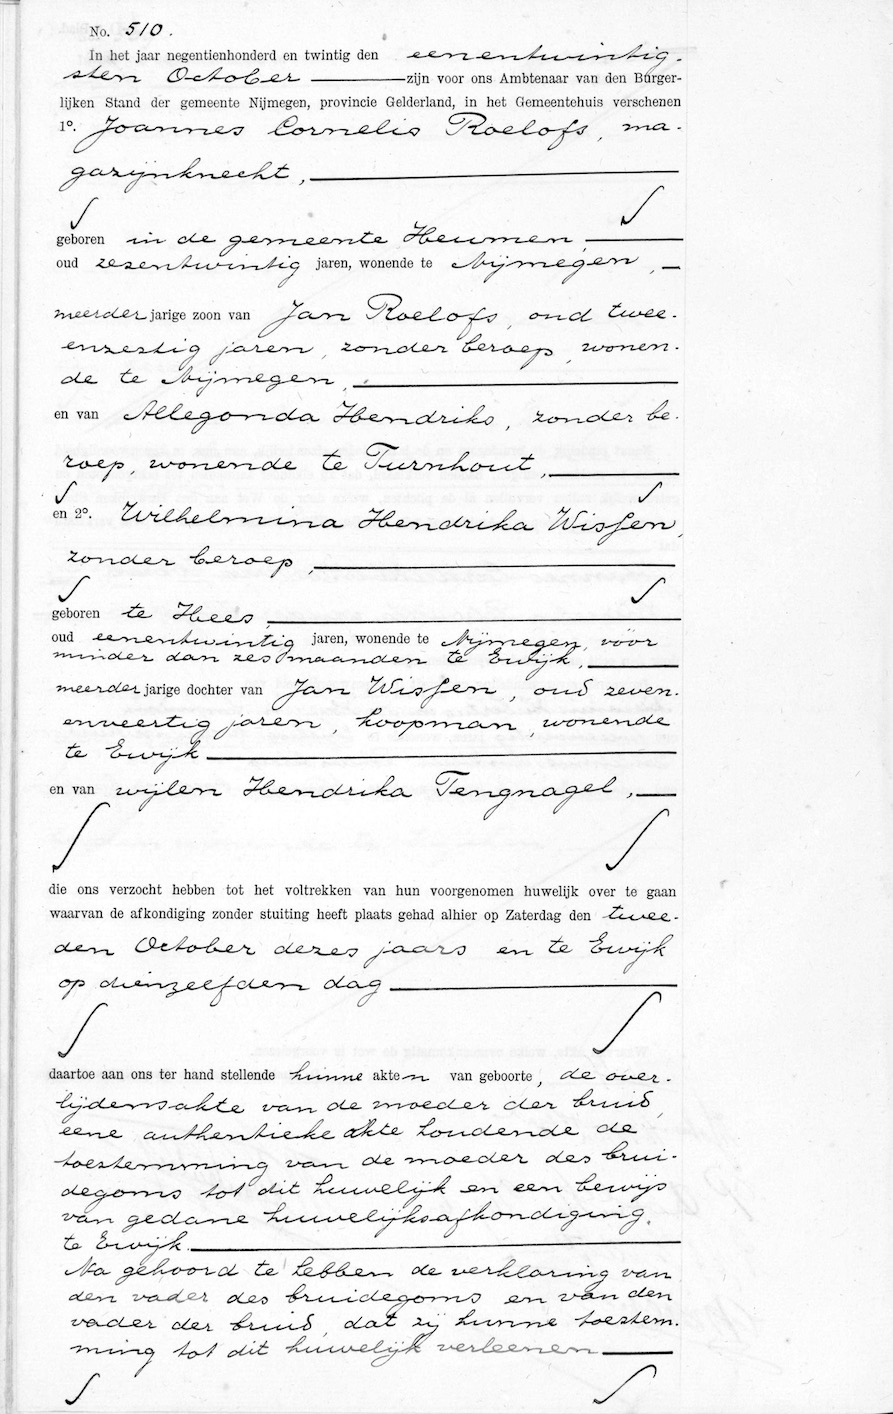 No. 510.
In het jaar negentienhonderd en twintig den eenentwintig-
sten October zijn voor ons Ambtenaar van den Burger-
lijken Stand der gemeente Nijmegen, provincie Gelderland, in het Gemeentehuis verschenen
1°. Joannes Cornelis Roelofs, ma-
gazijnknecht,
geboren in de gemeente Heumen,
oud zesentwintig jaren, wonende te Nijmegen,
meerderjarige zoon van Jan Roelofs, oud twee-
enzestig jaren, zonder beroep, wonen-
de te Nijmegen,
en van Allegonda Hendriks, zonder be-
roep, wonende te Turnhout,
en 2°. Wilhelmina Hendrika Wissen,
zonder beroep,
geboren te Hees,
oud eenentwintig jaren, wonende te Nijmegen, vóór
minder dan zes maanden te Ewijk,
meerderjarige dochter van Jan Wissen, oud zeven-
enveertig jaren, koopman, wonende
te Ewijk
en van wijlen Hendrika Tengnagel,
die ons verzocht hebben tot het voltrekken van hun voorgenomen huwelijk over te gaan
waarvan de afkondiging zonder stuiting heeft plaats gehad alhier op Zaterdag den twee-
den October dezes jaars en te Ewijk
op dienzelfden dag
daartoe aan ons ter hand stellende hunne akten van geboorte, de over-
lijdensakte van de moeder der bruid,
eene authentieke akte houdende de
toestemming van de moeder des brui-
degoms tot dit huwelijk en een bewijs
van gedane huwelijksafkondiging,
te Ewijk.
Na gehoord te hebben de verklaring van
den vader des bruidegoms en van den
vader der bruid, dat zij hunne toestem-
ming tot dit huwelijk verleenen